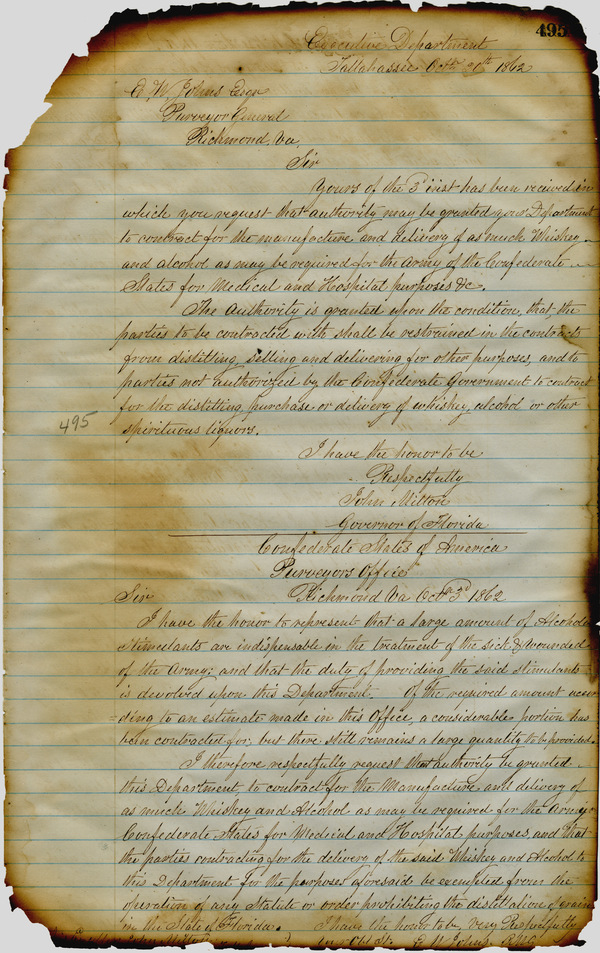 495
Executive Department
Tallahassee Octr 20th 1862
E. W. Johns Esqr
Purveyor General
Richmond, Va,
Sir
Yours of the 3d inst has been received in
which you request that authority may be granted your Department
to contract for the manufacture and delivery of as much Whiskey
and alcohol as may be required for the Army of the Confederate
States for Medical and Hospital purposes &c,
The Authority is granted upon the condition, that the
parties to be contracted with shall be restrained in the contracts
from distilling, selling and delivering for other purposes, and to
parties not authorized by the Confederate Government to contract
for the distilling, purchase or delivery of whiskey, alcohol or other
495
spirituous liquors.
I have the honor to be
Respectfully
John Milton
Governor of Florida
Confederate States of America
Purveyors Office
Richmond Va Octr 3d 1862
Sir
I have the honor to represent that a large amount of Alcoholic
Stimulants are indispensable in the treatment of the sick & wounded
of the Army; and that the duty of providing the said stimulants
is devolved upon this Department. Of the required amount accor
=ding to an estimate made in this Office, a considerable portion has
been contracted for, but there still remains a large quantity to be provided.
I therefore respectfully request that authority be granted
this Department to contract for the Manufacture and delivery of
as much Whiskey and Alcohol as may be required for the Army
Confederate States for Medical and Hospital purposes and that
the parties contracting for the delivery of the said Whiskey and Alcohol to
this Department for the purposes aforesaid be exempted from the
operation of any Statute or order prohibiting the distillation of grain
in the State of Florida. I have the honor to be, very Respectfully
Your Obt St. E. W. Johns